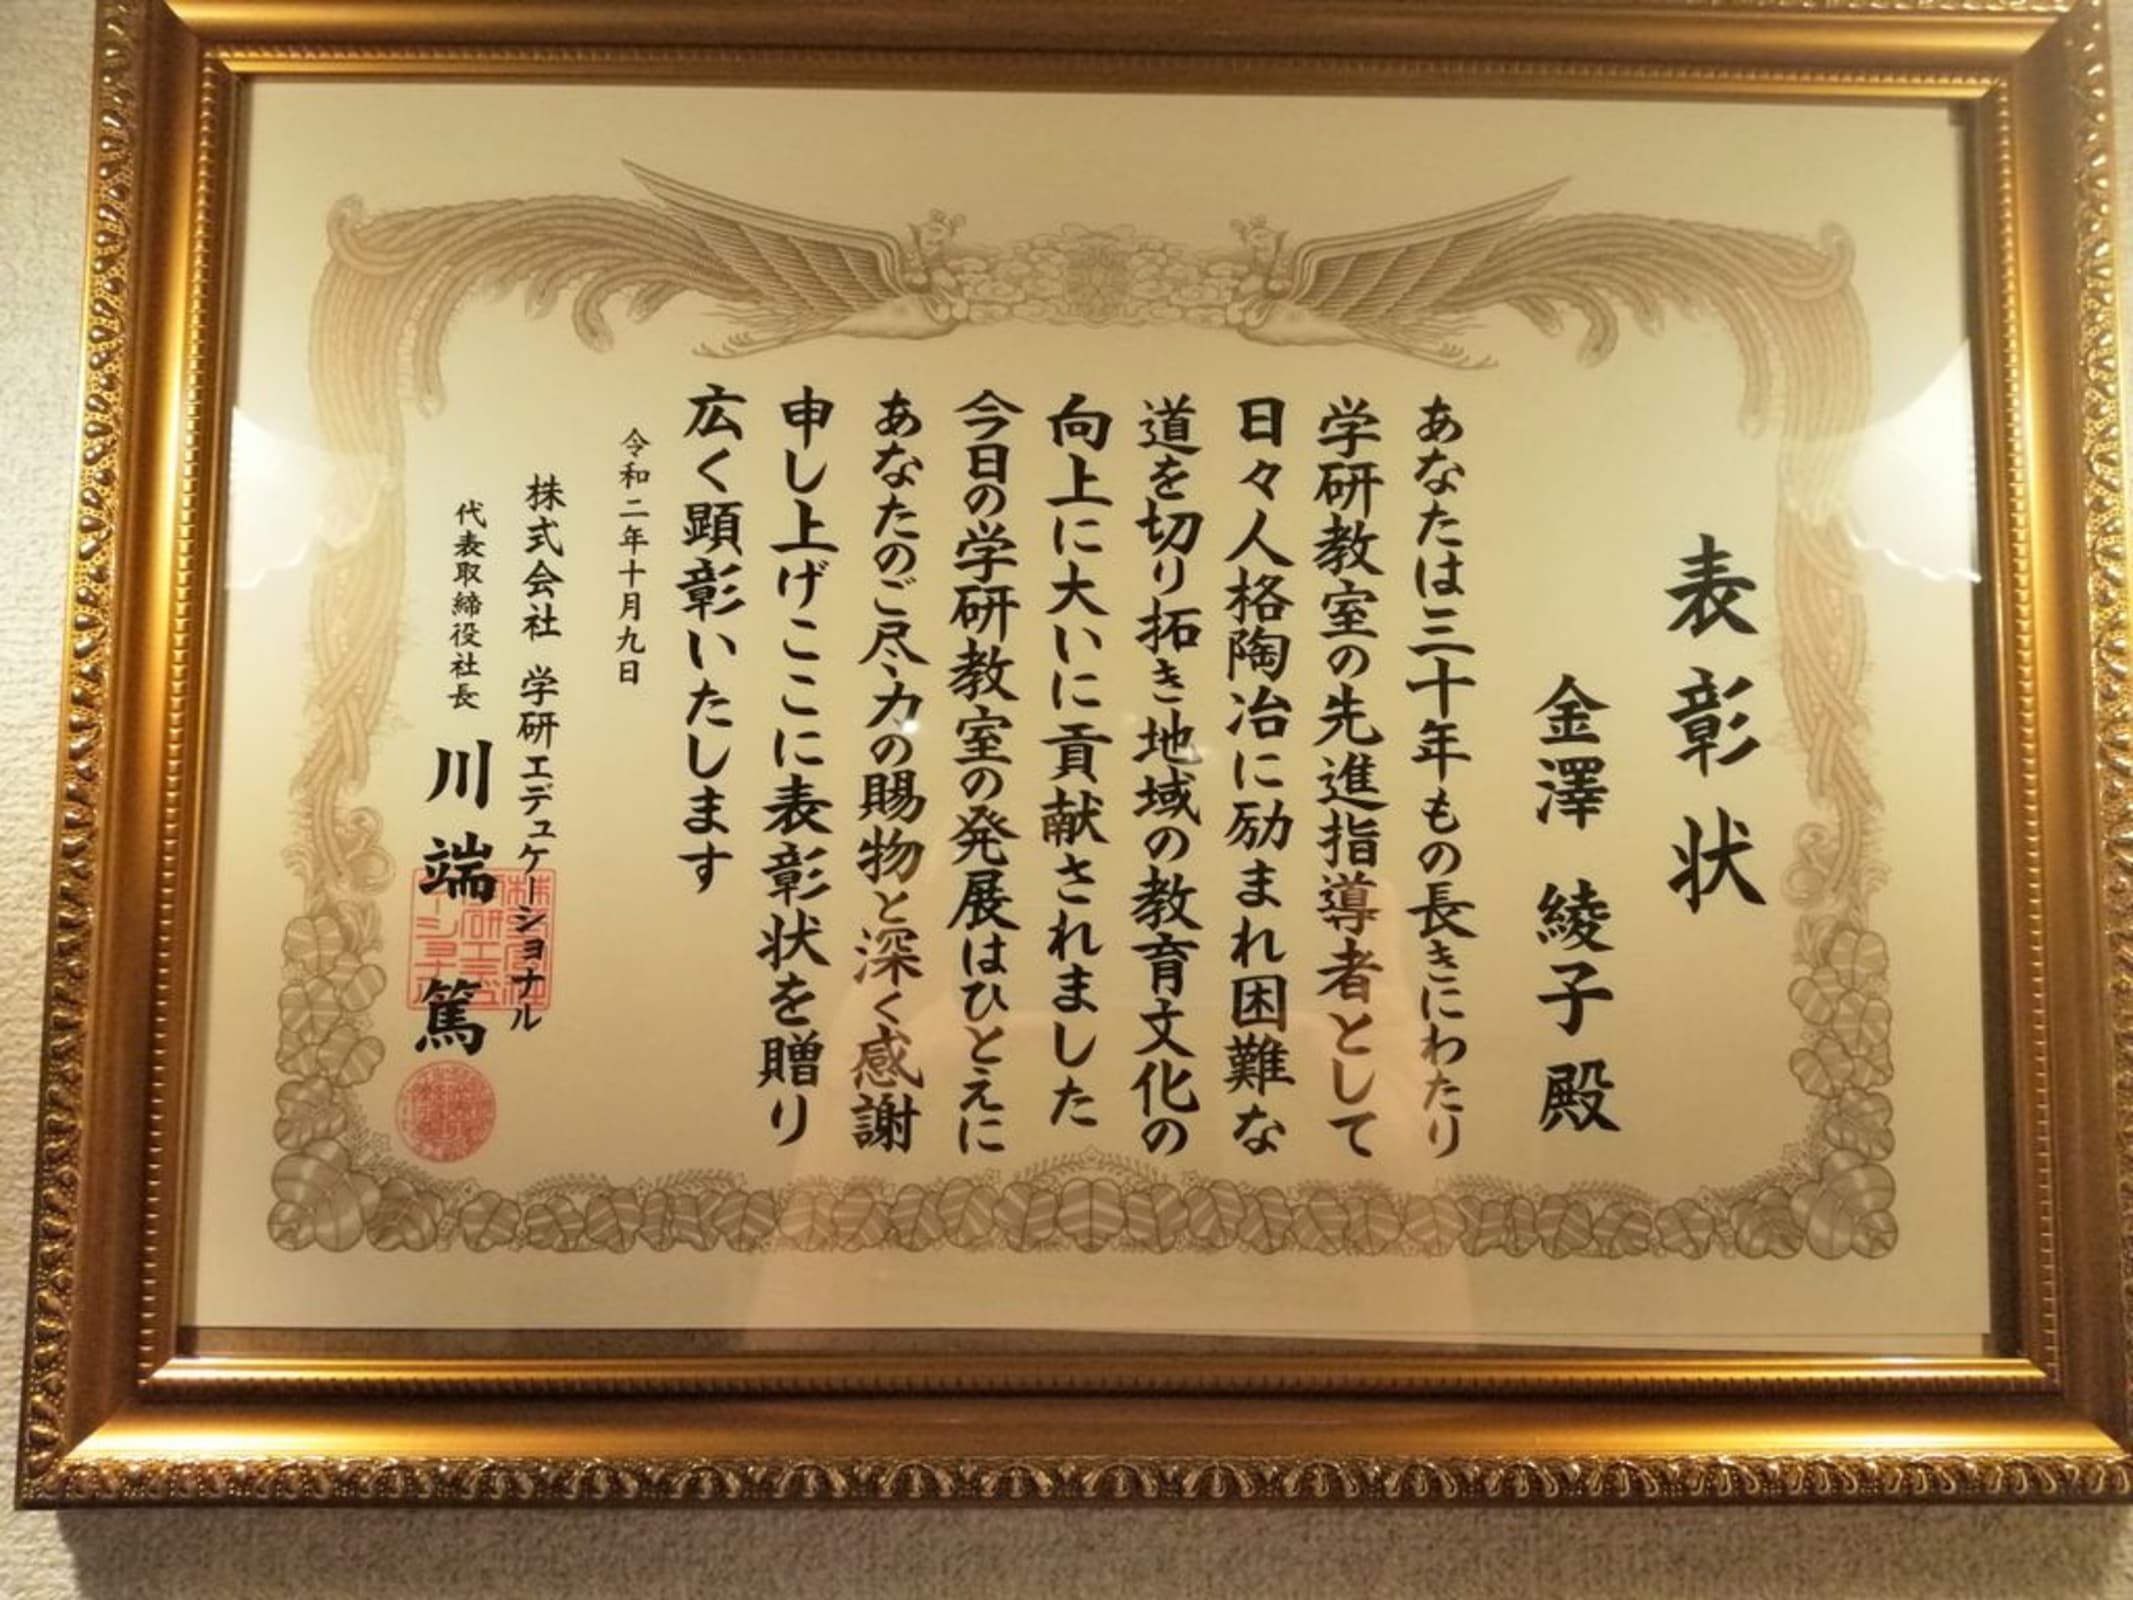 表彰状
金澤 綾子 殿
あなたは三十年もの長きにわたり
学研教室の先進指導者として
日々人格陶冶に励まれ困難な
道を切り拓き地域の教育文化の
向上に大いに貢献されました
今日の学研教室の発展はひとえに
あなたのご尽力の賜物と深く感謝
申し上げここに表彰状を贈り
広く顕彰いたします
令和二年十月九日
株式会社 学研エデュケーショナル
代表取締役社長 川端 篤